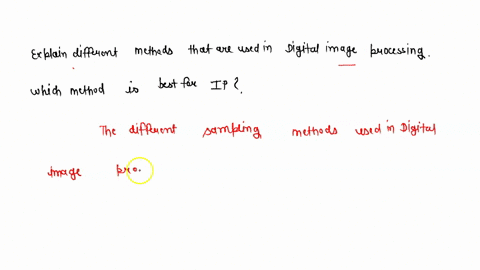 Explain different methods that are used in Digital image processing.
which method is best for IP?
The different sampling methods used in Digital
image pro.